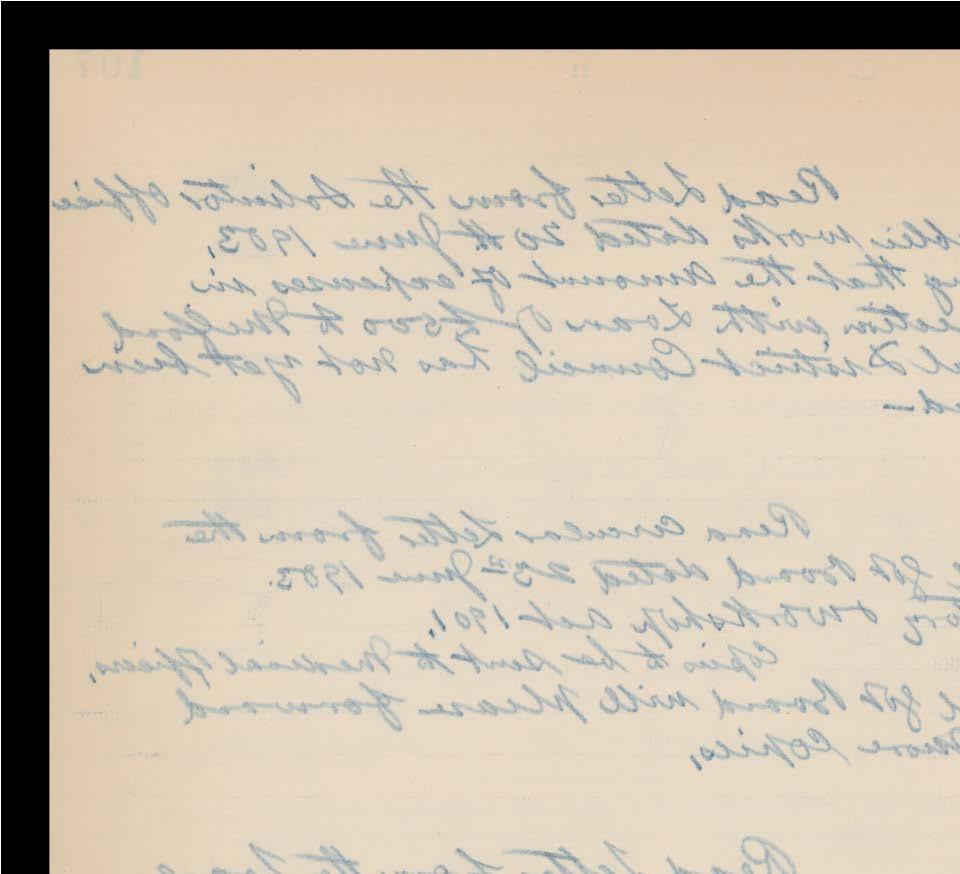 107
Read letter from the Solicitor Office
works dated 20th June 1903,
that the amount of expenses in
with Loan of £500 to Milford
District Council has not yet been
Read circular letter from the
Board dated 23rd June 1903.
& Workshop Act 1901.
Copies to be sent to Medical Officers,
Board will please forward
more Copies,
Read letter from the